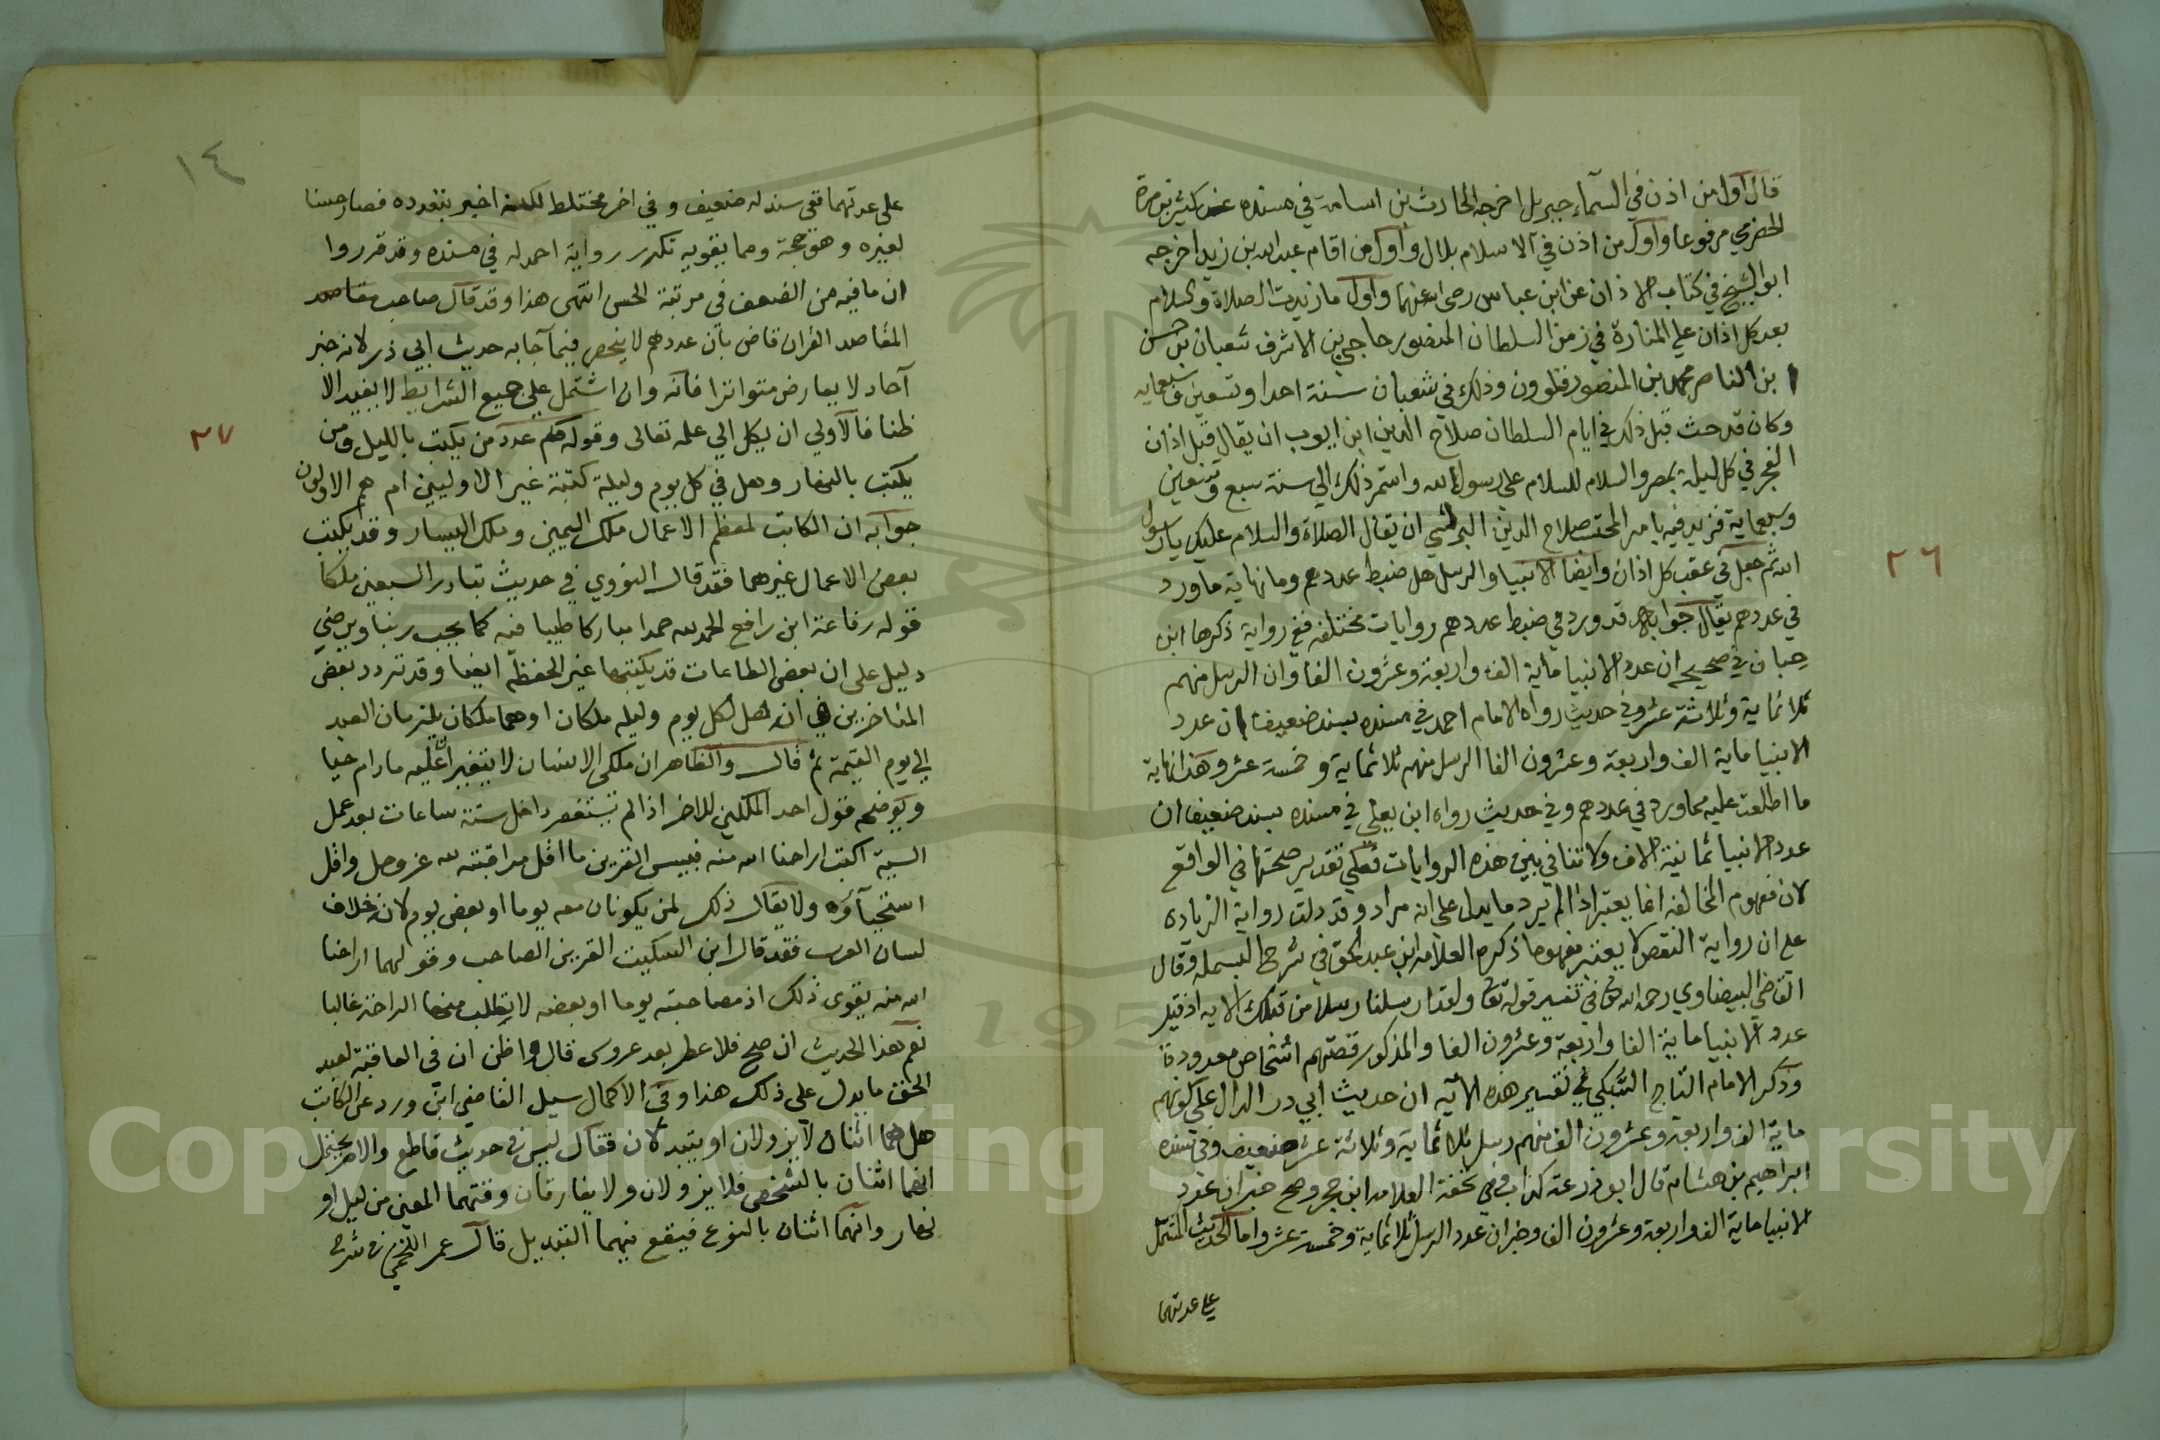 قال اول من اذن في السماء جبريل اخرجه الحارث بن اسامة في مسنده عن كثير بن مرة
الحضرمي مرفوعا واول من اذن في الاسلام بلال واول من اقام عبد الله بن زيد اخرجه
ابو الشيخ في كتاب الاذان عن ابن عباس رضي الله عنهما واول ما زيدت الصلاة والسلام
بعد كل اذان علي المنارة في زمن السلطان المنصور حاجي بن الاشرف شعبان بن حسن
بن الناصر محمد بن المنصور قلوون وذلك في شعبان سنة احدا وتسعين وسبعماية
وكان قد حدث قبل ذلك في ايام السلطان صلاح الدين ابن ايوب ان يقال قبل اذان
الفجر في كل ليلة بمصر والسلام للسلام علي رسول الله واستمر ذلك الي سنة سبع وتسعين
وسبعماية فزيد فيه بامر المحتسب صلاح الدين البرلسي ان يقال الصلاة والسلام عليك يا رسول
الله ثم جعل في عقب كل اذان وايضا الانبيا والرسل هل ضبط عددهم وما نهاية ما ورد
في عددهم يقال جوابه قد ورد في ضبط عددهم روايات مختلفه ففي رواية ذكرها ابن
حبان في صحيحه ان عدد الانبيا ماية الف واربعة وعشرون الفا وان الرسل منهم
ثلاثماية وثلاثة عشر وفي حديث رواه الامام احمد في مسنده بسند ضعيف ان عدد
الانبيا ماية الف واربعة وعشرون الفا الرسل منهم ثلاثماية وخمسة عشر وهذا نهاية
ما اطلعت عليه مما ورد في عددهم وفي حديث رواه ابن يعلي في مسنده بسند ضعيف ان
عدد الانبيا ثمانية الاف ولا تنافي بين هذه الروايات فعلي تقدير صحتها في الواقع
لان مفهوم المخالفه انما يعتبر اذا لم يرد ما يدل علي انه مراد وقد دلت رواية الزياده
علي ان رواية النقص لا يعتبر مفهومها ذكره العلامه ابن عبد الحق في شرح البسمله وقال
القاضي البيضاوي رحمه الله في تفسير قوله تعا ولقد ارسلنا رسلا من قبلك الايه اذ قيل
عدد الانبيا ماية الفا واربعة وعشرون الفا والمذكور قصتهم اشخاص معدودة
وذكر الامام التاج السبكي في تفسير هذه الآيه ان حديث ابي ذر الدال علي كونهم
ماية الف واربعة وعشرون الف منهم رسل ثلاثماية وثلاثة عشر ضعيف وفي سنده
ابراهيم بن هشام قال ابو زرعة كذاب وفي تحفة العلامه ابن حجر وصح خبر ان عدد
الانبيا ماية الف واربعة وعشرون الف وخبر ان عدد الرسل ثلاثماية وخمسة عشر واما الحديث المشتمل
علي عدتهما
٢٦
١٤
علي عدتهما ففي سند له ضعيف وفي اخر مختلط لكنه اخبر بتعدده فصار حسنا
لغيره وهو حجة ومما يقويه تكرر رواية احمد له في مسنده وقد قرروا
ان ما فيه من الضعف في مرتبة الحسن انتهى هذا وقد قال صاحب مقاصد
المقاصد القران قاض بان عددهم لا ينحصر فيما جا به حديث ابي ذر لانه خبر
آحاد لا يعارض متواترا فانه وان اشتمل علي جميع الشرايط لا يفيد الا
ظنا فالاولي ان يكل الي علمه تعالى وقوله كم عدد من يكتب بالليل ومن
يكتب بالنهار وهل في كل يوم وليلة كتبة غير الاوليين ام هم الاولون
جوابه ان الكاتب لمعظم الاعمال ملك اليمين وملك اليسار وقد يكتب
بعض الاعمال غيرهما فقد قال النووي في حديث تبادر السبعين ملكا
قوله رفاعة ابن رافع الحمد لله حمدا مباركا طيبا فيه كما يحب ربنا ويرضي
دليل علي ان بعض الطاعات قد يكتبها غير الحفظة ايضا وقد تردد بعض
المتاخرين في انه هل لكل يوم وليله ملكان او هما ملكان يلتزمان العبد
الي يوم القيمة ثم قال والظاهر ان ملكي الانسان لا يتغيران عليه ما دام حيا
ويوضحه قول احد الملكين للاخر اذا لم يستغفر داخل ستة ساعات بعد عمل
السية اكتب اراحنا الله منه فبيس القرين ما اقل مراقبته لله عز وجل واقل
استحيآؤه ولا يقال ذلك لمن يكونان معه يوما او بعض يوم لانه خلاف
لسان العرب فقد قال ابن السكيت القرين الصاحب وقولهما اراحنا
الله منه يقوى ذلك اذ مصاحبته يوما او بعضه لا يطلب منها الراحة غالبا
نعم هذا الحديث ان صح فلا عطر بعد عروس قال واظن ان في العاقبة لعبد
الحق ما يدل علي ذلك هذا وفي الاكمال سيل القاضي ابن ورد عن الكاتب
هل هما اثنان لا يزولان او يتبدلان فقال ليس في حديث قاطع والامر يحتمل
انهما اثنان بالشخص فلا يزولان ولا يفارقان وقتهما المعين من ليل او
نهار وانهما اثنان بالنوع فيقع فيهما التبديل قال عمر اللخمي في شرح
٢٧